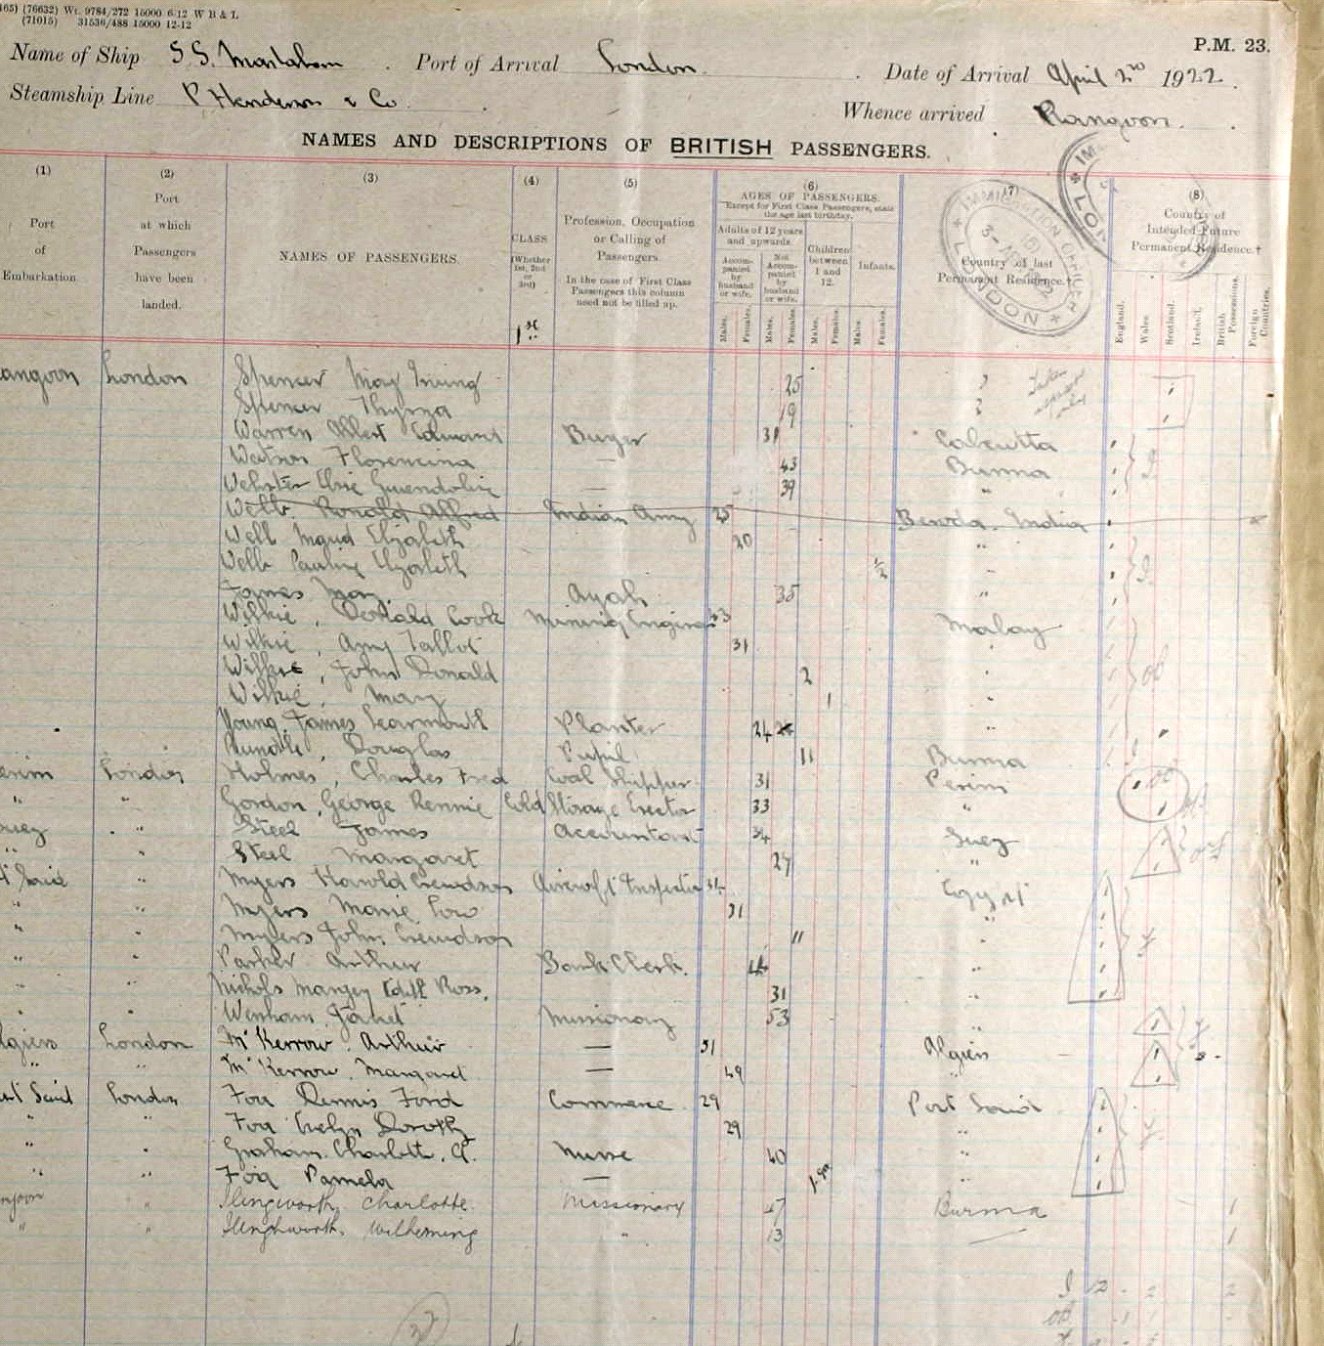 165) (76632) Wt. 9784/272 15000 6-12 W B & L
(71015) 31536/488 15000 12-12
P.M. 23.
Name of Ship S.S. Martaban. Port of Arrival London. Date of Arrival April 2nd 1922.
Steamship Line P Henderson & Co. Whence arrived Rangoon.
NAMES AND DESCRIPTIONS OF BRITISH PASSENGERS.
(1) (2) (3) (4) (5) (6) (7) (8)
Port of Embarkation
Port at which Passengers have been landed.
NAMES OF PASSENGERS.
CLASS (Whether 1st, 2nd or 3rd)
1st
Profession, Occupation or Calling of Passengers.
In the case of First Class Passengers this column need not be filled up.
AGES OF PASSENGERS.
Except for First Class Passengers, state the age last birthday.
Adults of 12 years and upwards.
Accompanied by husband or wife.
Not Accompanied by husband or wife.
Children between 1 and 12.
Infants.
Males. Females. Males. Females. Males. Females. Males. Females.
Country of last Permanent Residence.†
Country of Intended Future Permanent Residence.†
England. Wales. Scotland. Ireland. British Possessions. Foreign Countries.
IMMIGRATION OFFICER LONDON
angoon London Spencer May Irving 25 "
Spencer Thyrza 19 "
Warren Albert Edward Buyer 31 Calcutta
Watson Florencina — 43 Burma
Webster Elsie Gwendoline — 39 "
Webb. Ronald Alfred Indian Army 25 India
Webb Ingrid Elizabeth 20 "
Webb Pauline Elizabeth 1/2 "
James May Ayah 35 "
Wilkie, Donald Cook Mining Engineer 33 Malay
Wilkie, Amy Talbot 31 "
Wilkie, John Donald 2 "
Wilkie, Mary 1 "
Young James Learmouth Planter 24 "
Douglas Pupil 11 Burma
erim London Holmes, Charles Fred Coal Shipper 31 Perim
" " Gordon, George Rennie Cold Storage Erector 33 "
uez " Steel James Accountant 34 Suez
" " Steel Margaret 27 "
t Said " Myers Harold Crewdson Aircraft Inspector 34 Egypt
" " Myers Marie Low 31 "
" " Myers John Crewdson 11 "
" " Parker Arthur Bank Clerk. 44 "
" " Nichols Edith Ross. 31 "
" " Wenham Janet Missionary 53 "
lgiers London McKerrow. Arthur — 51 Algiers
" " McKerrow. Margaret — 49 "
ort Said London Foa Dennis Ford Commerce 29 Port Said
" " Foa Evelyn Dorothy 29 "
" " Graham. Charlotte. A. Nurse 40 "
" " Foa Pamela — "
ngoon " Ilingworth, Charlotte. Missionary 47 Burma
" " Ilinghworth. Wilhemina " 13 —